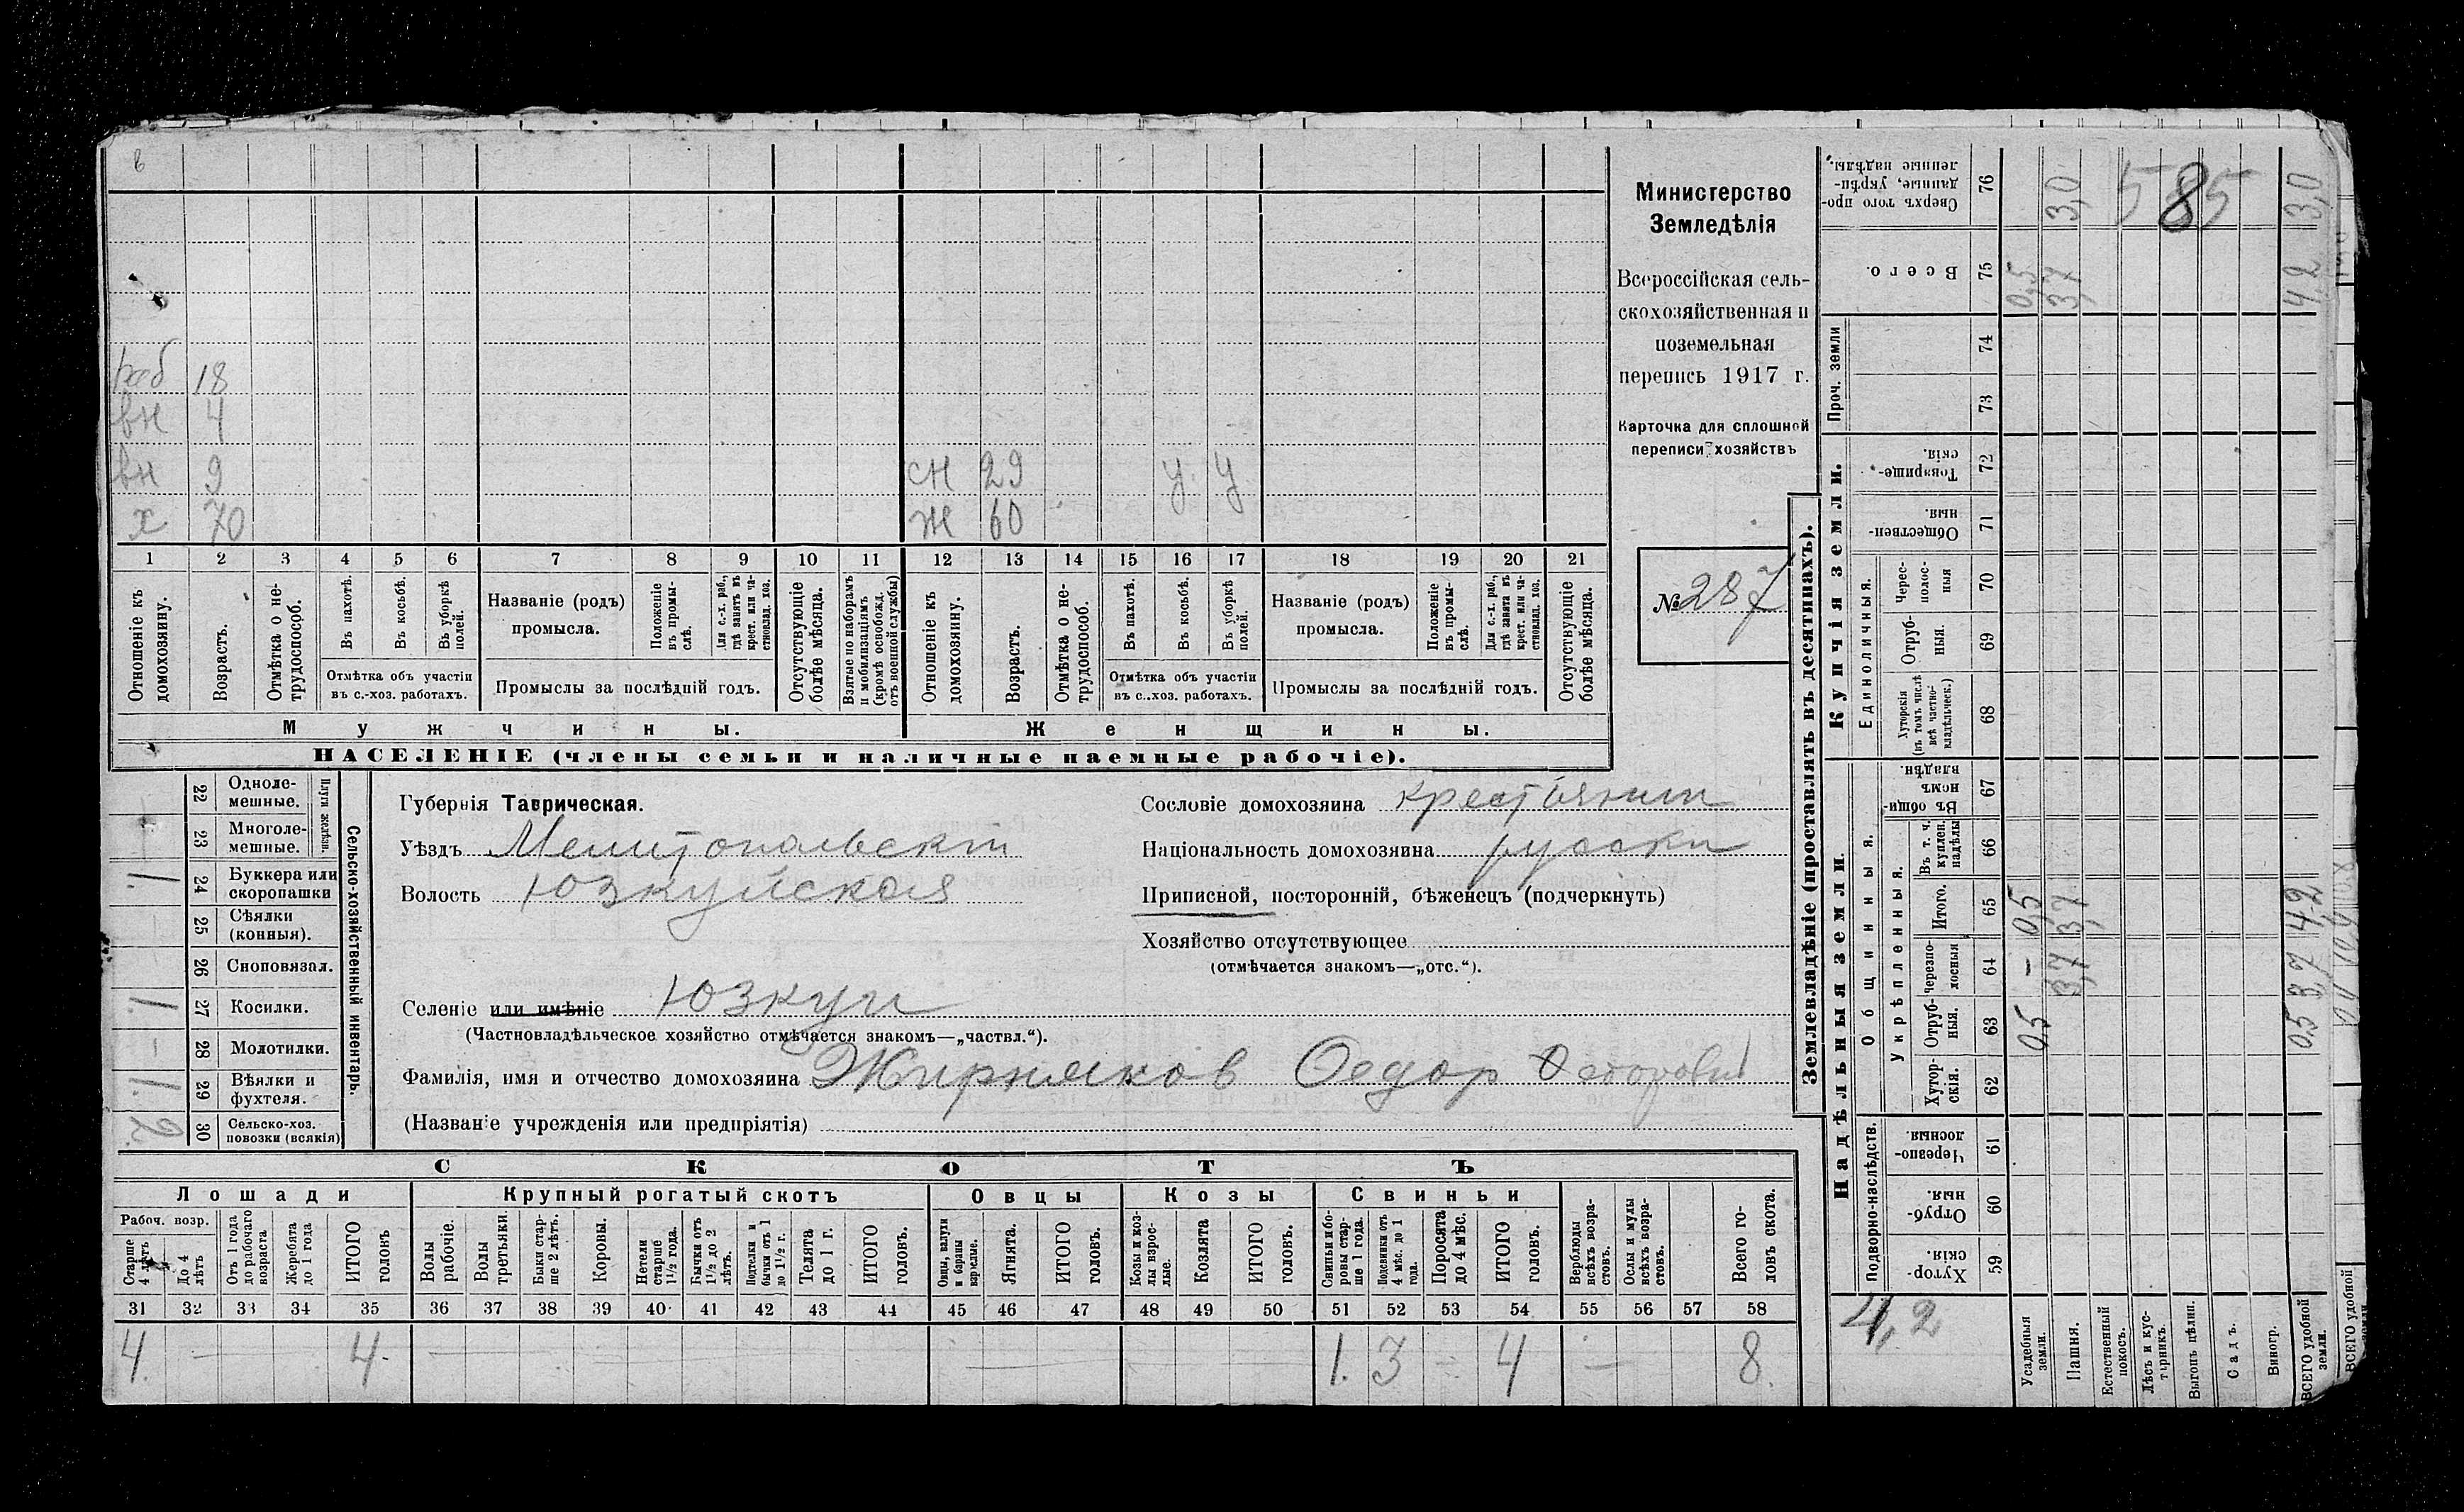 в
раб 18
вн 4
вн 9 сн 29 у. у.
х 70 ж 60
1 2 3 4 5 6 7 8 9 10 11 12 13 14 15 16 17 18 19 20 21
Отношеніе къ домохозяину.
Возрастъ.
Отмѣтка о не-трудоспособ.
Въ пахотѣ.
Въ косьбѣ.
Въ уборкѣ полей.
Отмѣтка объ участіи
въ с.-хоз. работахъ.
Названіе (родъ)
промысла.
Положеніе въ промы-слѣ.
Для с.-х. раб., гдѣ занятъ въ крест. или ча-стновлад. хоз.
Промыслы за послѣдній годъ.
Отсутствующіе болѣе мѣсяца.
Взятые по наборамъ и мобилизаціямъ (кромѣ освобожд. отъ военной службы)
Отношеніе къ домохозяину.
Возрастъ.
Отмѣтка о не-трудоспособ.
Въ пахотѣ.
Въ косьбѣ.
Въ уборкѣ полей.
Отмѣтка объ участіи
въ с..хоз. работахъ.
Названіе (родъ)
промысла.
Положеніе въ промы-слѣ.
Для с.-х. раб., гдѣ занята въ крест. или ча-стновлад. хоз.
Промыслы за послѣдній годъ.
Отсутствующіе болѣе мѣсяца.
Мужчины. Женщины.
НАСЕЛЕНІЕ (члены семьи и наличные наемные рабочіе).
Министерство
Земледѣлія
Всероссійская сель-
скохозяйственная и
поземельная
перепись 1917 г.
Карточка для сплошной
переписи хозяйствъ
№ 287
Сельско-хозяйственный инвентарь.
Плуги желѣзн.
22 Одноле-
мешные.
23 Многоле-
мешные.
1 24 Буккера или
скоропашки
25 Сѣялки
(конныя).
26 Сноповязал.
1. 27 Косилки.
— 28 Молотилки.
1. 29 Вѣялки и
фухтеля.
2. 30 Сельско-хоз.
повозки (всякія)
Губернія Таврическая.
Уѣздъ Мелитопольскій
Волость Юзкуйская
Селеніе или имѣніе Юзкуи
(Частновладѣльческое хозяйство отмѣчается знакомъ—„частвл.“).
Фамилія, имя и отчество домохозяина Жирняков Федор Федорович
(Названіе учрежденія или предпріятія)
Сословіе домохозяина крестьянин
Національность домохозяина русски
Приписной, посторонній, бѣженецъ (подчеркнуть)
Хозяйство отсутствующее
(отмѣчается знакомъ—„отс.“).
СКОТЪ
Лошади Крупный рогатый скотъ Овцы Козы Свиньи
Рабоч. возр.
Старше 4 лѣтъ
До 4 лѣтъ
Отъ 1 года до рабочаго возраста
Жеребята до 1 года
ИТОГО головъ
Волы рабочіе.
Волы третьяки.
Быки стар-ше 2 лѣтъ.
Коровы.
Нетели старше 1½ года.
Бычки отъ 1½ до 2 лѣтъ.
Подтелки и бычки отъ 1 до 1½ г.
Телята до 1 г.
ИТОГО головъ.
Овцы, валухи и бараны взрослые.
Ягнята.
ИТОГО головъ.
Козы и коз-лы взрос-лые.
Козлята
ИТОГО головъ.
Свиньи и бо-ровы стар-ше 1 года.
Подсвинки отъ 4 мѣс. до 1 года.
Поросята до 4 мѣс.
ИТОГО головъ.
Верблюды всѣхъ возра-стовъ.
Ослы и мулы всѣхъ возра-стовъ.
Всего го-ловъ скота.
31 32 33 34 35 36 37 38 39 40 41 42 43 44 45 46 47 48 49 50 51 52 53 54 55 56 57 58
4. — 4. — — 1. 3 – 4 — 8.
Землевладѣніе (проставлять въ десятинахъ).
Купчія земли.
Надѣльныя земли.
Сверхъ того про-данные, укрѣп-ленные надѣлы. 76 3,0 585 3,0
Всего. 75 0,5 3,7 4,2
Проч. земли
74
73
Товарище-скія. 72
Обществен-ныя. 71
Единоличныя.
Черес-полос-ныя 70
Отруб-ныя. 69
Хуторскія (въ томъ числѣ всѣ частно-владѣльческ.) 68
Общинныя.
Въ общин-номъ владѣн. 67
Укрѣпленныя.
Въ т. ч. куплен. надѣлы 66
Итого. 65 0,5 3,7 4,2
Черезпо-лосныя 64 — 3,7 3,7
Отруб-ныя. 63 0,5 0,5
Хутор-скія. 62
Подворно-наслѣдств.
Черезпо-лосныя. 61
Отруб-ныя. 60
Хутор-скія. 59
4,2
Усадебныя земли.
Пашня.
Естественный покосъ.
Лѣсъ и кус-тарникъ.
Выгонъ цѣлин.
Садъ.
Виногр.
ВСЕГО удобной земли.
ВСЕГО удобной